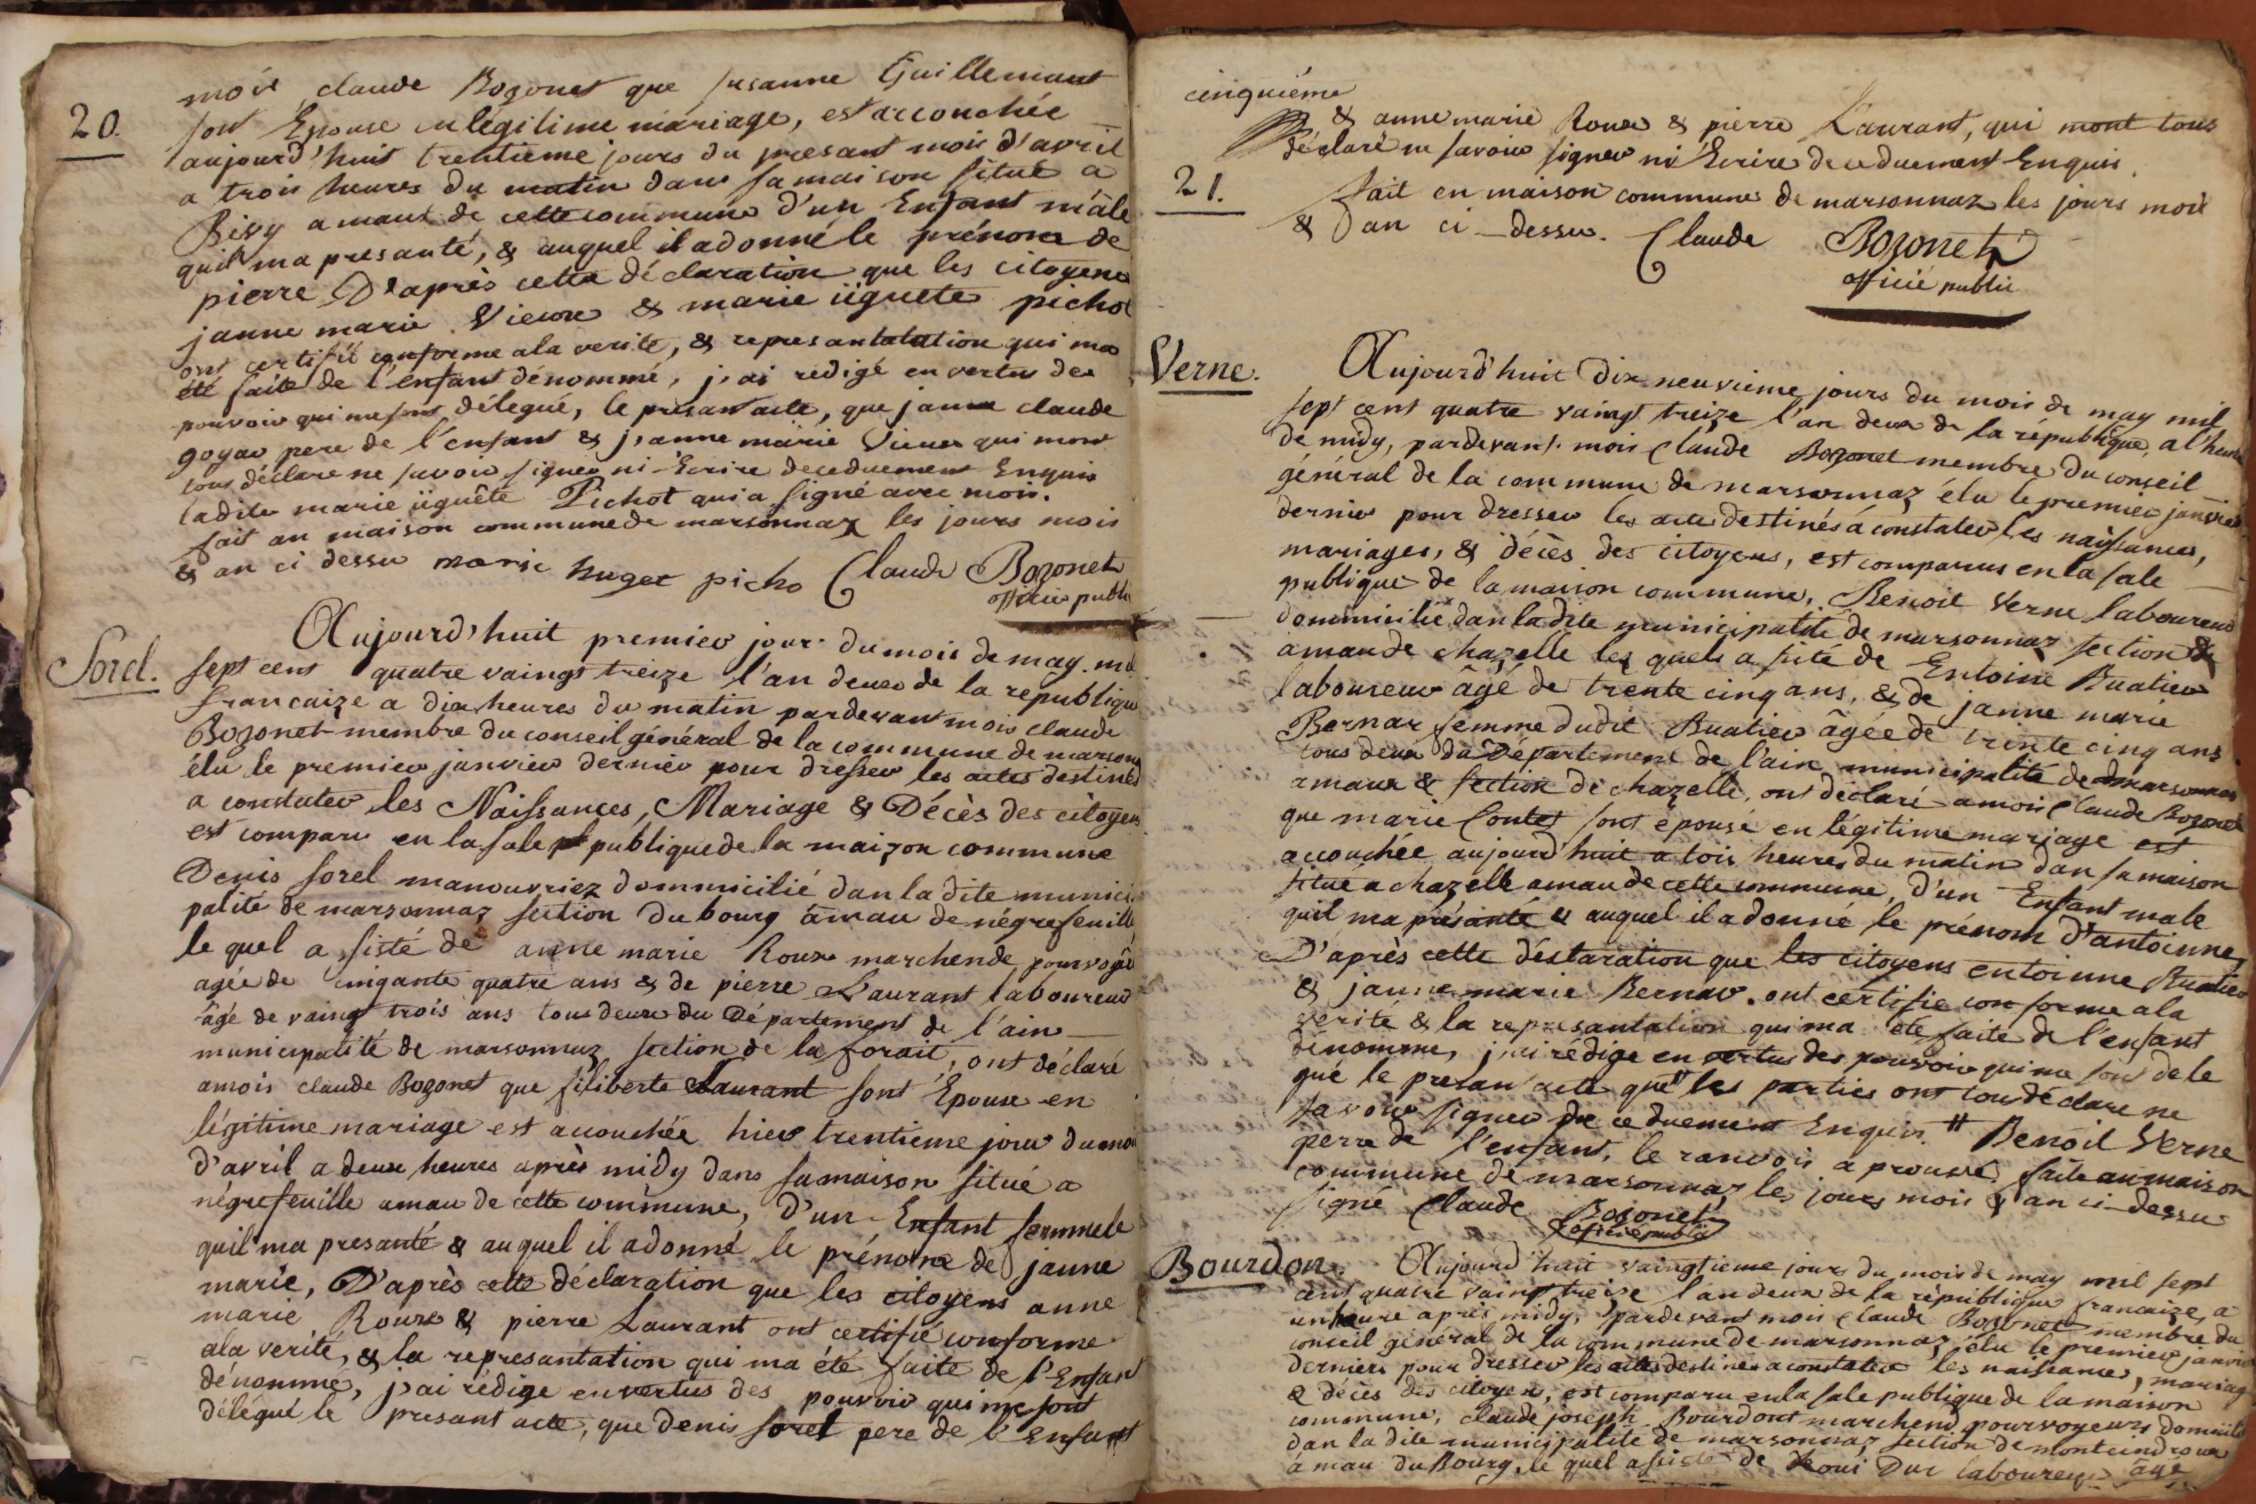 20.
moi claude Bozonet que susanne Guillemaut
sont Epouse en legitime mariage, est accouchée
aujourd'huit trentieme jours du presant mois d'avril
a trois heures du matin dans sa maison situé a
Bévy amaux de cette commune d'un Enfant mâle
quil ma presanté, & auquel il a donné le prénom de
pierre D'après cette déclaration que les citoyens
janne marie Vieux & marie üguete pichot
ont certifié conforme ala verite, & represantatation qui ma
été faite de l'enfant dénommé, j'ai redigé en vertus des
pouvoir qui me sont délegué, le presant acte, que janne claude
goyau pere de l'enfant & janne marie Vieux qui mont
tous déclare ne savoir signer ni Ecrire de ceduement Enquis
ladite marie üguête Pichot qui a signé avec mois.
fait an maison commune de marsonnaz les jours mois
& an ci dessu marie huget picho Claude Bozonet
officié publi
Sorel.
Aujourd'huit premier jour du mois de may mil
sept cent quatre vaingt treize l'an deux de la republique
francaize a dix heures du matin pardevant mois claude
Bozonet membre du conseil général de la commune de marsonna
élu le premier janvier dernier pour dresser les actes destinés
a constater les Naissances, Mariage & Décès des citoyens
est comparu en la sale publique de la maizon commune
Denis sorel manouvriez dommicilié dan la dite munici
palité de marsonnaz section du bourg amau de négrefeuille
le quel a sisté de anne marie Roux marchende pourvoyeu
agée de cinqante quatre ans & de pierre Laurant laboureur
âgé de vaingt trois ans tous deux du Département de l'ain
municipalité de marsonnaz section de la forait, ont déclaré
amois claude Bozonet que filiberte Laurant sont Epouse en
légitime mariage est acouchée hier trentieme jour du moi
d'avril a deux heures après midy dans sa maison situé a
négrefeuille amau de cette commune, d'un Enfant femmele
quil ma presanté & auquel il a donné le prénom de janne
marie, D'après cette déclaration que les citoyens anne
marie Roux & pierre Laurant ont certifié conforme
ala verité, & la represantation qui ma été faite de l'Enfant
dénomme, j'ai rédige en vertus des pouvoir qui me sont
délégué le presant acte, que denis sorel pere de l'Enfant
cinquiéme
& anne marie Roux & pierre Laurant, qui mont tous
déclaré ne savoir signer ni Ecrire de ceduement Enquis.
21.
fait en maison commune de marsonnaz les jours mois
& an ci-dessu. Claude Bozonet
officié public
Verne.
Aujourd'huit Dix neuvieme jours du mois de may mil
sept cent quatre vaingt treize l'an deux de la république, a l'heure
de midy, pardevant mois Claude Bozonet membre du conseil
général de la commune de marsonnaz élu le premier janvier
dernier pour dresser les acte destinés à constater les naissances,
mariages, & décès des citoyens, est comparus en la sale
publique de la maison commune, Benoit Verne laboureur
dommicilié dan la dite municipalité de marsonnaz section de
amau de chazelle les quels a sité de Entoine Buatier
laboureur âgé de trente cinq ans, & de janne marie
Bernar femme dudit Buatier âgée de trente cinq ans
tous deux du Département de l'ain municipalité de marsonnas
amaux & section de chazelle, ont déclaré amois Claude Bozonet
que marie Contet sont épouse en légitime mariage est
accouchée aujourd'huit a tois heures du matin dan sa maison
situé a chazelle amau de cette commune, d'un Enfant male
quil ma présanté & auquel il a donné le prénom d'antoinne,
D'après cette déstaration que les citoyens entoinne Buatier
& janne marie Bernar. ont certifie conforme ala
vérité & la represantation qui ma été faite de l'enfant
dénomme, j'ai rédige en vertus des pouvoir qui me sont dele
gué le presan acte que les parties ont tou déclare ne
savoir signer de ceduement Enquis. # Benoit Verne
perre de l'enfant, le ranvois aprouvé faite an maison
commune de marsonnaz les jours mois & an ci-dessu
signé Claude Bozonet
officié public
Bourdon.
Aujourd'huit vaingtieme jours du mois de may mil sept
cent quatre vaingt treise l'an deux de la république francaize, a
un heure après midy, pardevant mois Claude Bozonet membre du
conseil général de la commune de marsonnaz élu le premier janvier
derniers pour dresser les actes destinés a constater les naissances, mariag
& décès des citoyens, est comparu en la sale publique de la maison
commune, claude joseph Bourdont marchend pourvoyeurs domicilié
dan la dite municipalité de marsonnaz section de monteindroux
amau du Bourg, le quel a sisté de Duc laboureur âgé